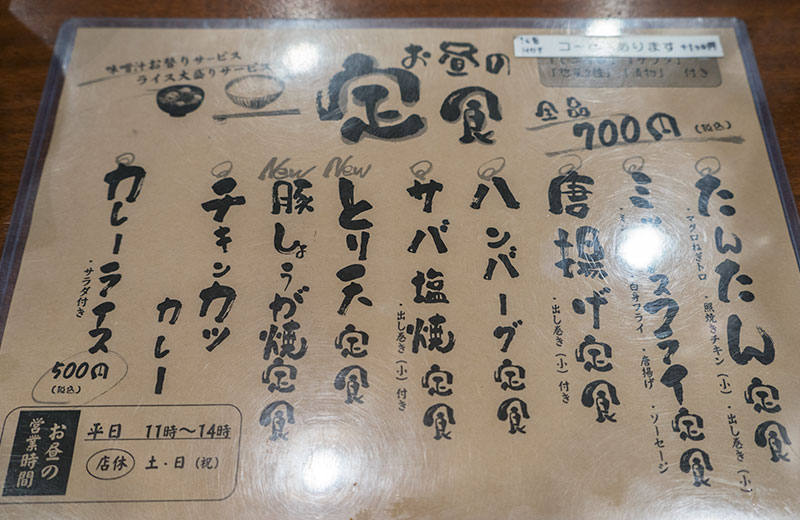 お昼の
定食
味噌汁お替りサービス
ライス大盛りサービス
コーヒーあります +100円
付き
全品
700円(税込)
たんたん定食
・マグロねぎトロ
・照焼きチキン(小)・出し巻き(小)
ミックスフライ定食
・白身フライ
・唐揚げ・ソーセージ
唐揚げ定食
・出し巻き(小)付き
ハンバーグ定食
サバ塩焼定食
・出し巻き(小)付き
New
とり天定食
New
豚しょうが焼定食
チキンカツ
カレー
カレーライス
・サラダ付き
500円
(税込)
お昼の
営業時間
平日 11時～14時
店休 土・日(祝)